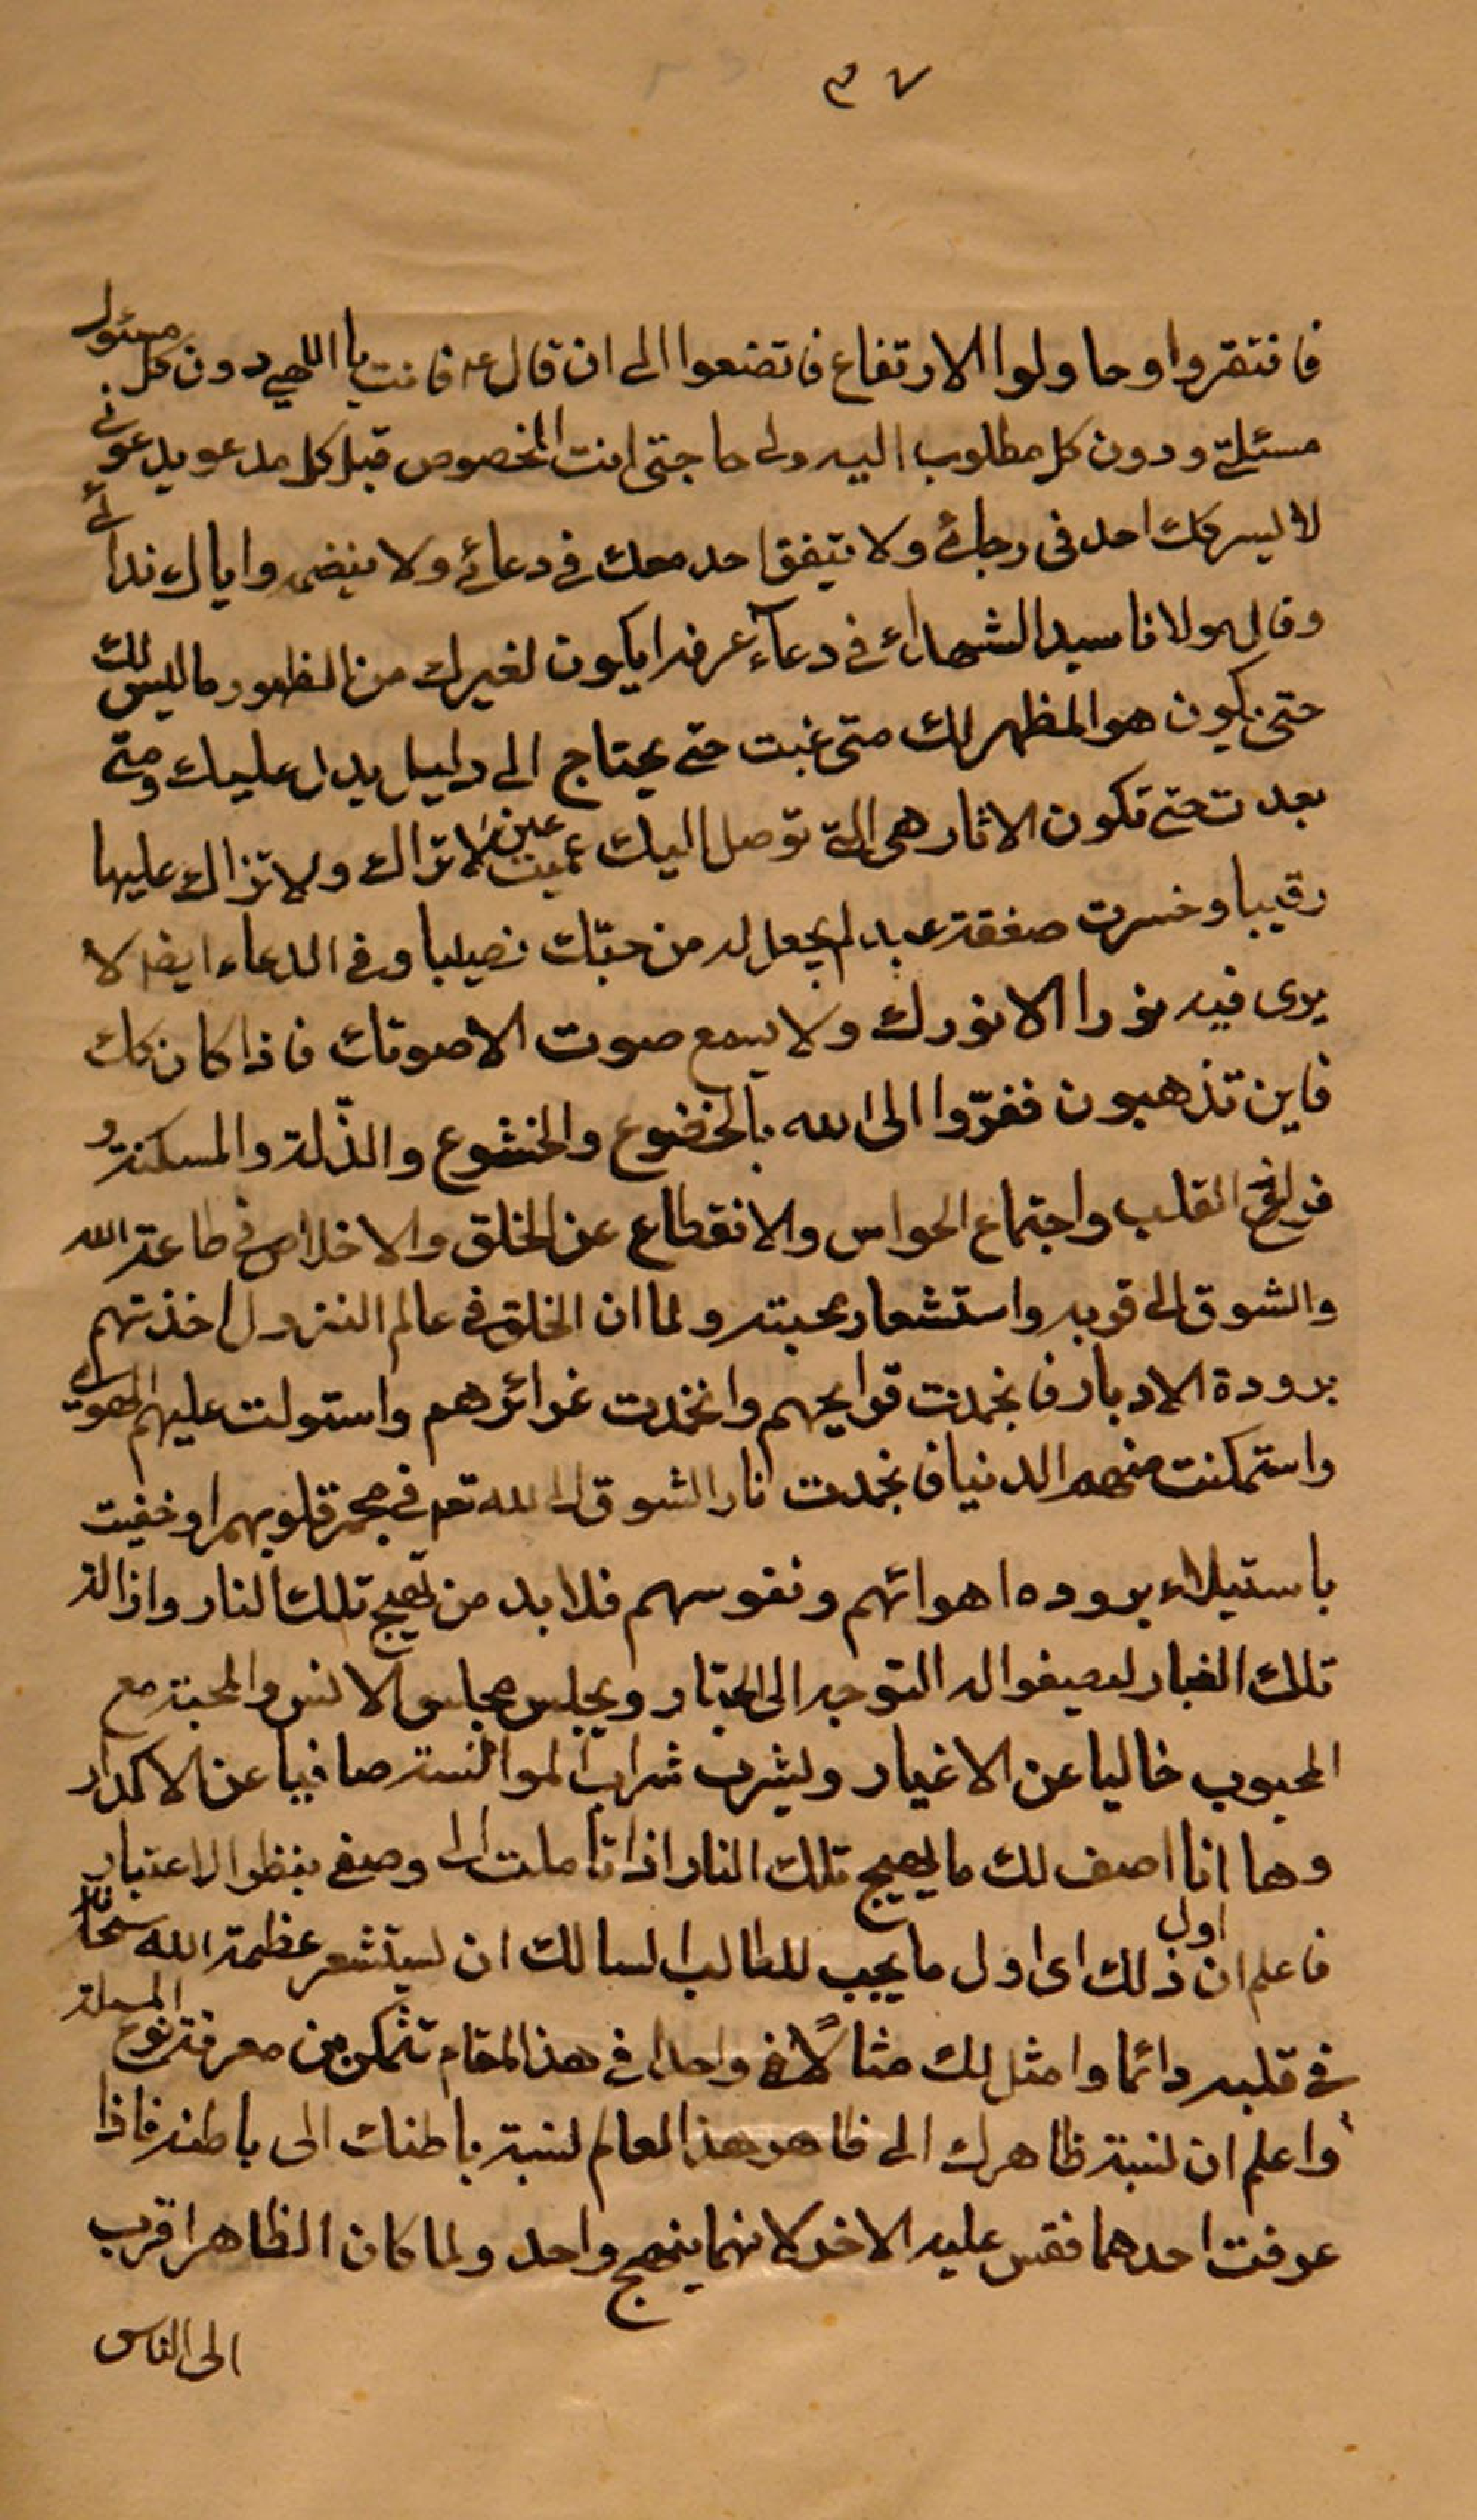 ٣٧
فافتقروا وحاولوا الارتفاع فاتضعوا الى ان قال ع فانت يا الهي دون كل مسئول
مسئلتي ودون كل مطلوب اليه ولي حاجتي انت المخصوص قبل كل مدعو بدعوتي
لا يشركك احد في رجائي ولا يتفق احد معك في دعائي ولا ينضمه واياك ندائي
وقال مولانا سيد الشهداء في دعاء عرفه ايكون لغيرك من الظهور ما ليس لك
حتى يكون هو المظهر لك متى غبت حتى يحتاج الى دليل يدل عليك ومتى
بعدت حتى تكون الاثار هي التي توصل اليك عميت عين لا تراك ولا تزال عليها
رقيبا وخسرت صفقة عبد لم يجعل له من حبّك نصيبا وفي الدعاء ايضا لا
يرى فيه نورا الا نورك ولا يسمع صوت الا صوتك فاذا كان كك
فاين تذهبون ففرّوا الى الله بالخضوع والخشوع والذّلة والمسكنة و
فراغ القلب واجتماع الحواس والانقطاع عن الخلق والاخلاص في طاعة الله
والشوق الى قربه واستشعار محبته ولما ان الخلق في عالم النزول اخذتهم
برودة الادبار فانجمدت قوايحهم وانخمدت غرائزهم واستولت عليهم الهويات
واستمكنت منهم الدنيا فانخمدت نار الشوق الى الله تعه في مجمر قلوبهم او خفيت
باستيلاء بروده اهوائهم ونفوسهم فلا بد من تهيج تلك النار وازالة
تلك الغبار ليصفوا له التوجه الى الجبّار ويجلس مجلس الانس والمحبة مع
المحبوب خاليا عن الاغيار ويشرب شراب الموانسة صافيا عن الاكدار
وها انا اصف لك ما يهيج تلك النار اذا تاملت الى وصفي بنظر الاعتبار
فاعلم ان اول ذلك اى اول ما يجب للطالب السالك ان يستشعر عظمة الله سبحانه
في قلبه دائما وامثل لك مثالاً في واحدا في هذا المقام تتمكن من معرفة نوع المسئلة
واعلم ان نسبة ظاهرك الى ظاهر هذا العالم نسبة باطنك الى باطنه فاذا
عرفت احدهما فقس عليه الاخر لانهما بنهج واحد ولما كان الظاهر اقرب
الى الناس